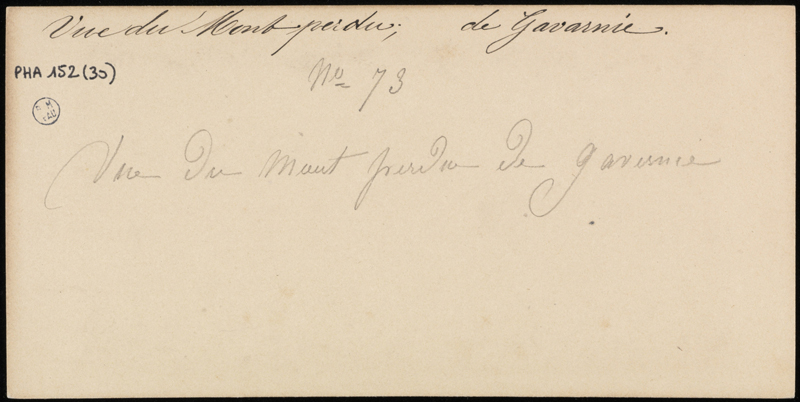 Vue du Mont perdu; de Gavarnie.
PHA 152 (30)
No 73
Vue du Mont perdu de gavernie